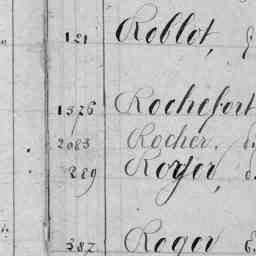 121 Roblot,
1376 Rochefort
2083 Rocher,
289 Royer
387 Roger